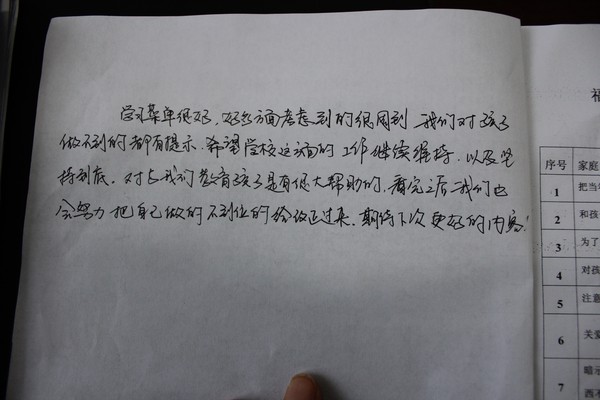 学习菜单很好，好多方面考虑到的很周到 我们对孩子
做不到的都有提示。希望学校这方面的工作继续维持，以及坚
持到底。对与我们教育孩子是有很大帮助的，看完之后我们也
会努力把自己做的不到位的给改正过来。期待下次更好的内容！
福
序号 家庭
1 把当年
2 和孩
3 为了
4 对孩
5 注意
6 关爱
7 暗示
西不